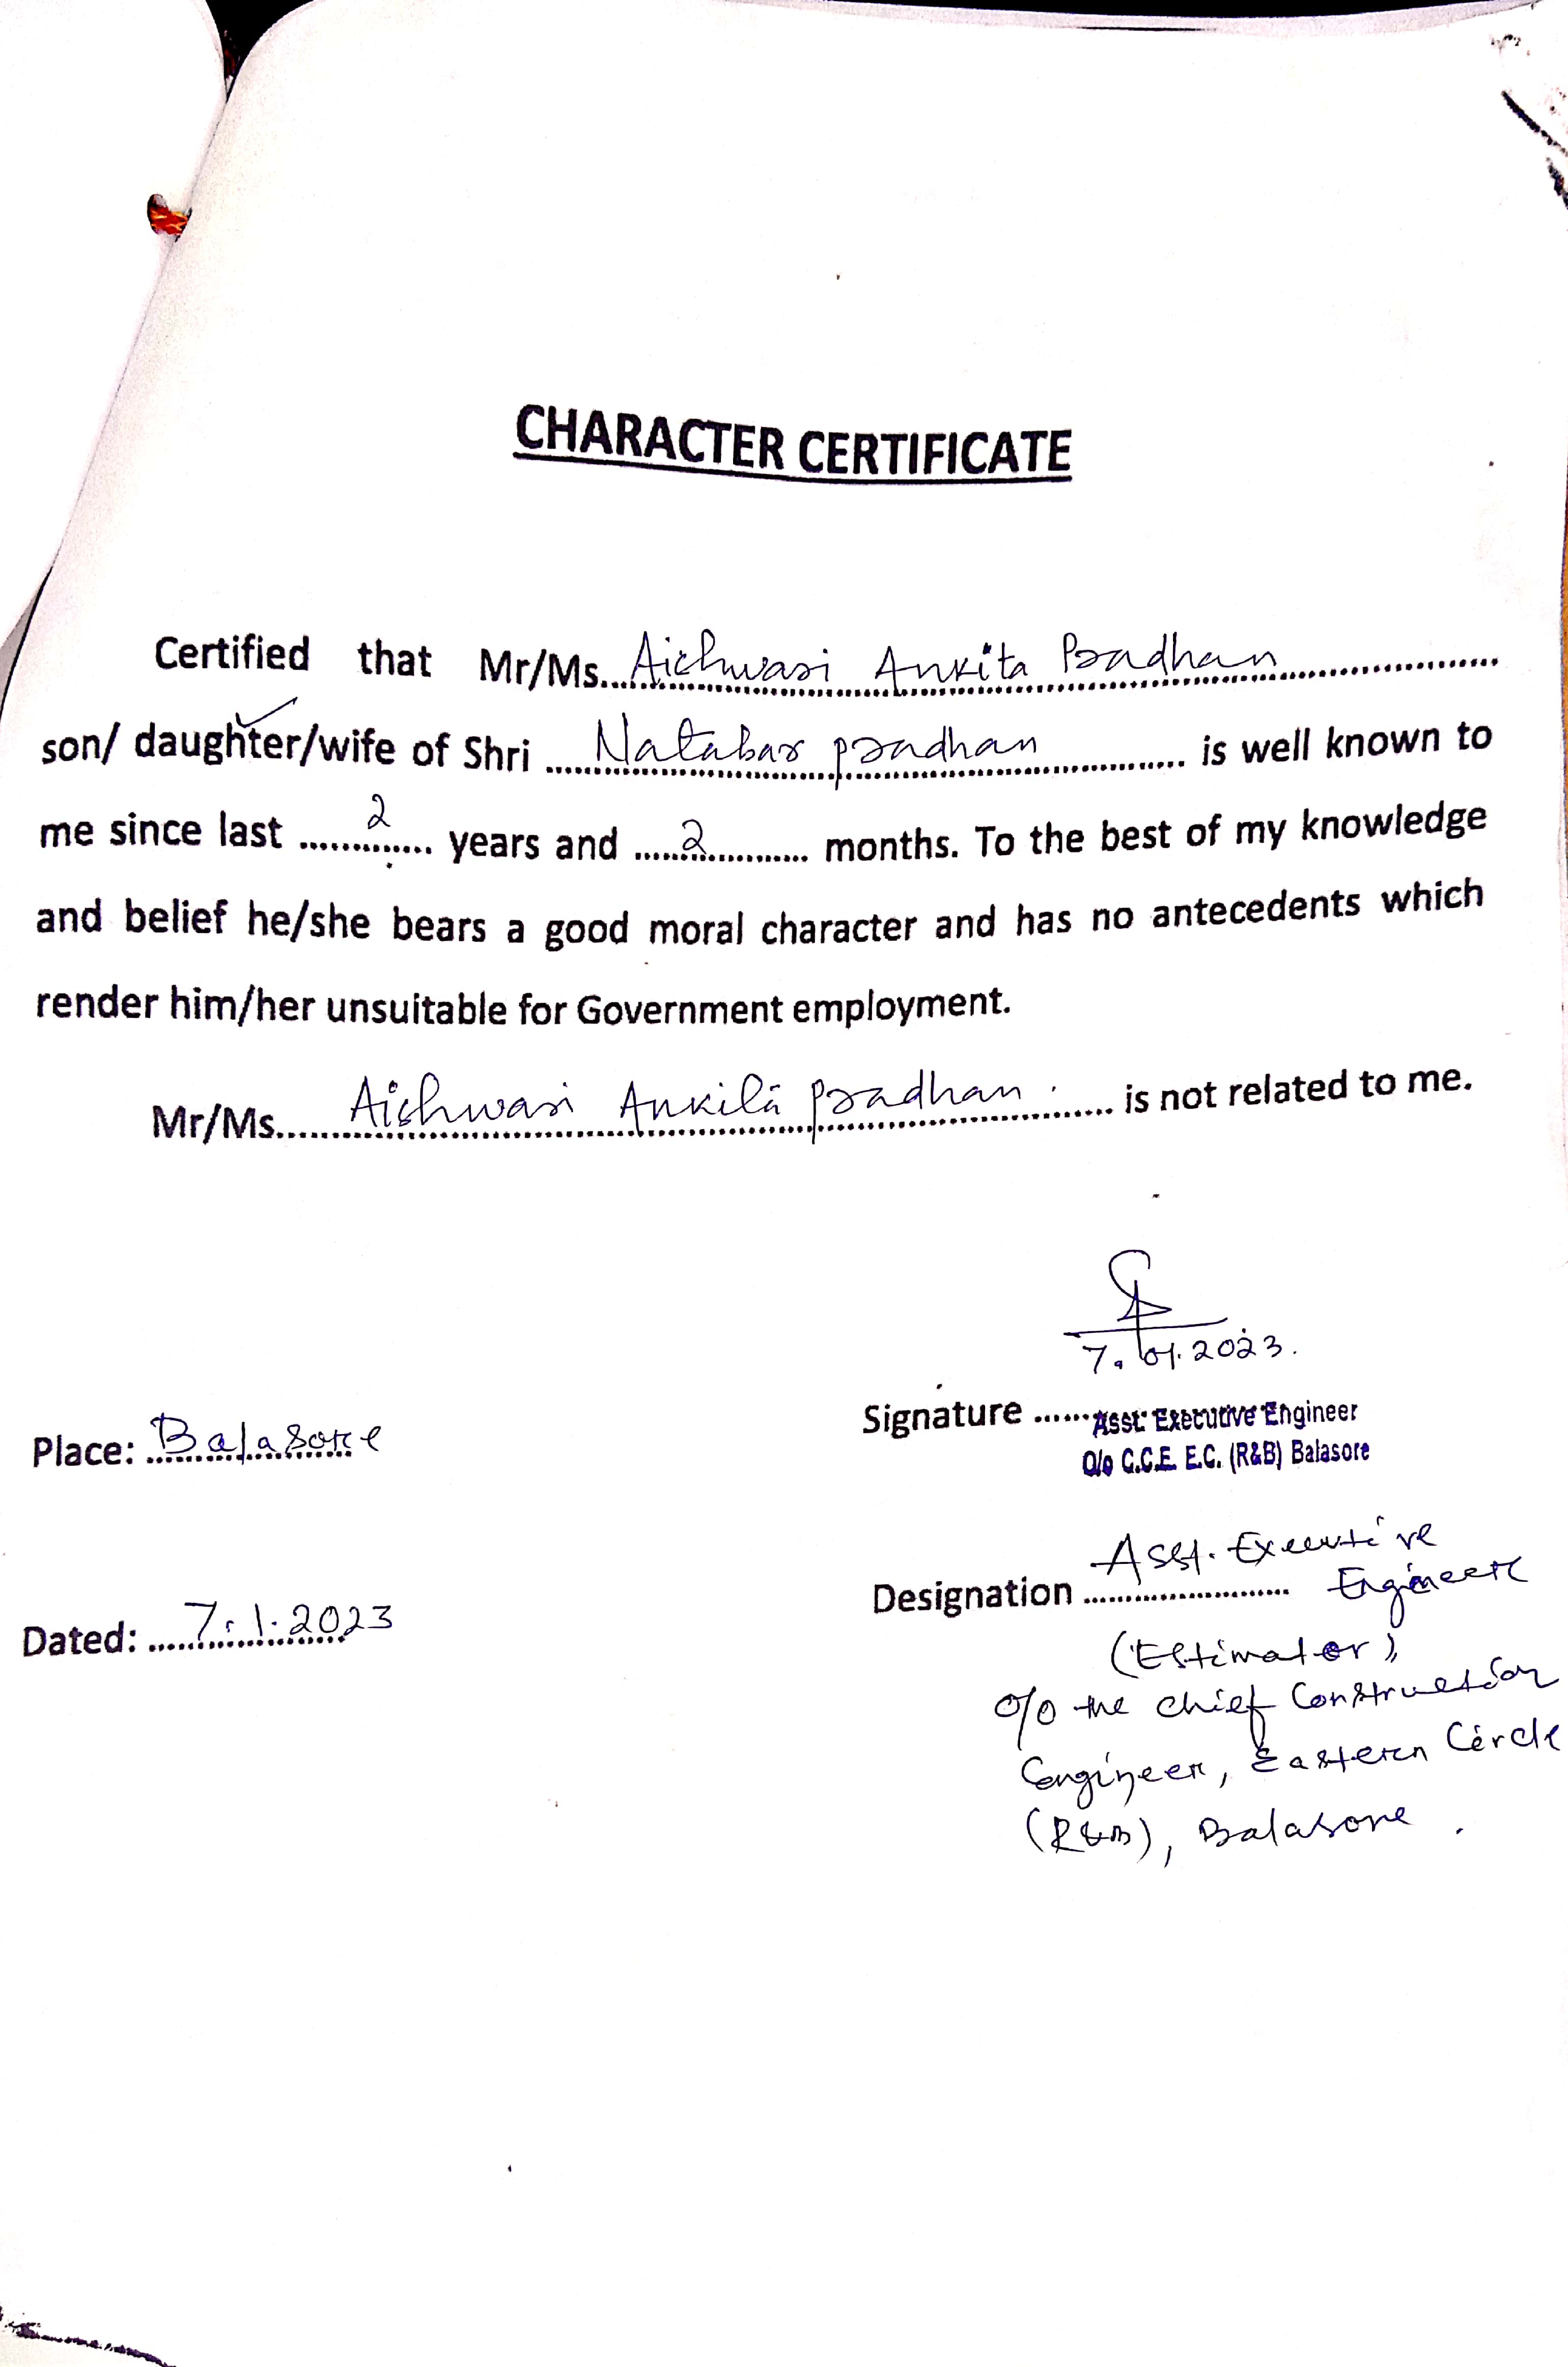 CHARACTER CERTIFICATE
Certified that Mr/Ms...Aishwari Ankita Pradhan..................
son/ daughter/wife of Shri ......Natabar pradhan.................. is well known to
me since last ......2...... years and ......2............ months. To the best of my knowledge
and belief he/she bears a good moral character and has no antecedents which
render him/her unsuitable for Government employment.
Mr/Ms......Aishwari Ankita pradhan......... is not related to me.
7.01.2023.
Signature ......Asst. Executive Engineer
O/o C.C.E. E.C. (R&B) Balasore
Place: Balasore
Asst. Executive
Designation ........................ Engineer
Dated: ...7.1.2023
(Estimator),
O/o the Chief Construction
Engineer, Eastern Circle
(R&B), Balasore.